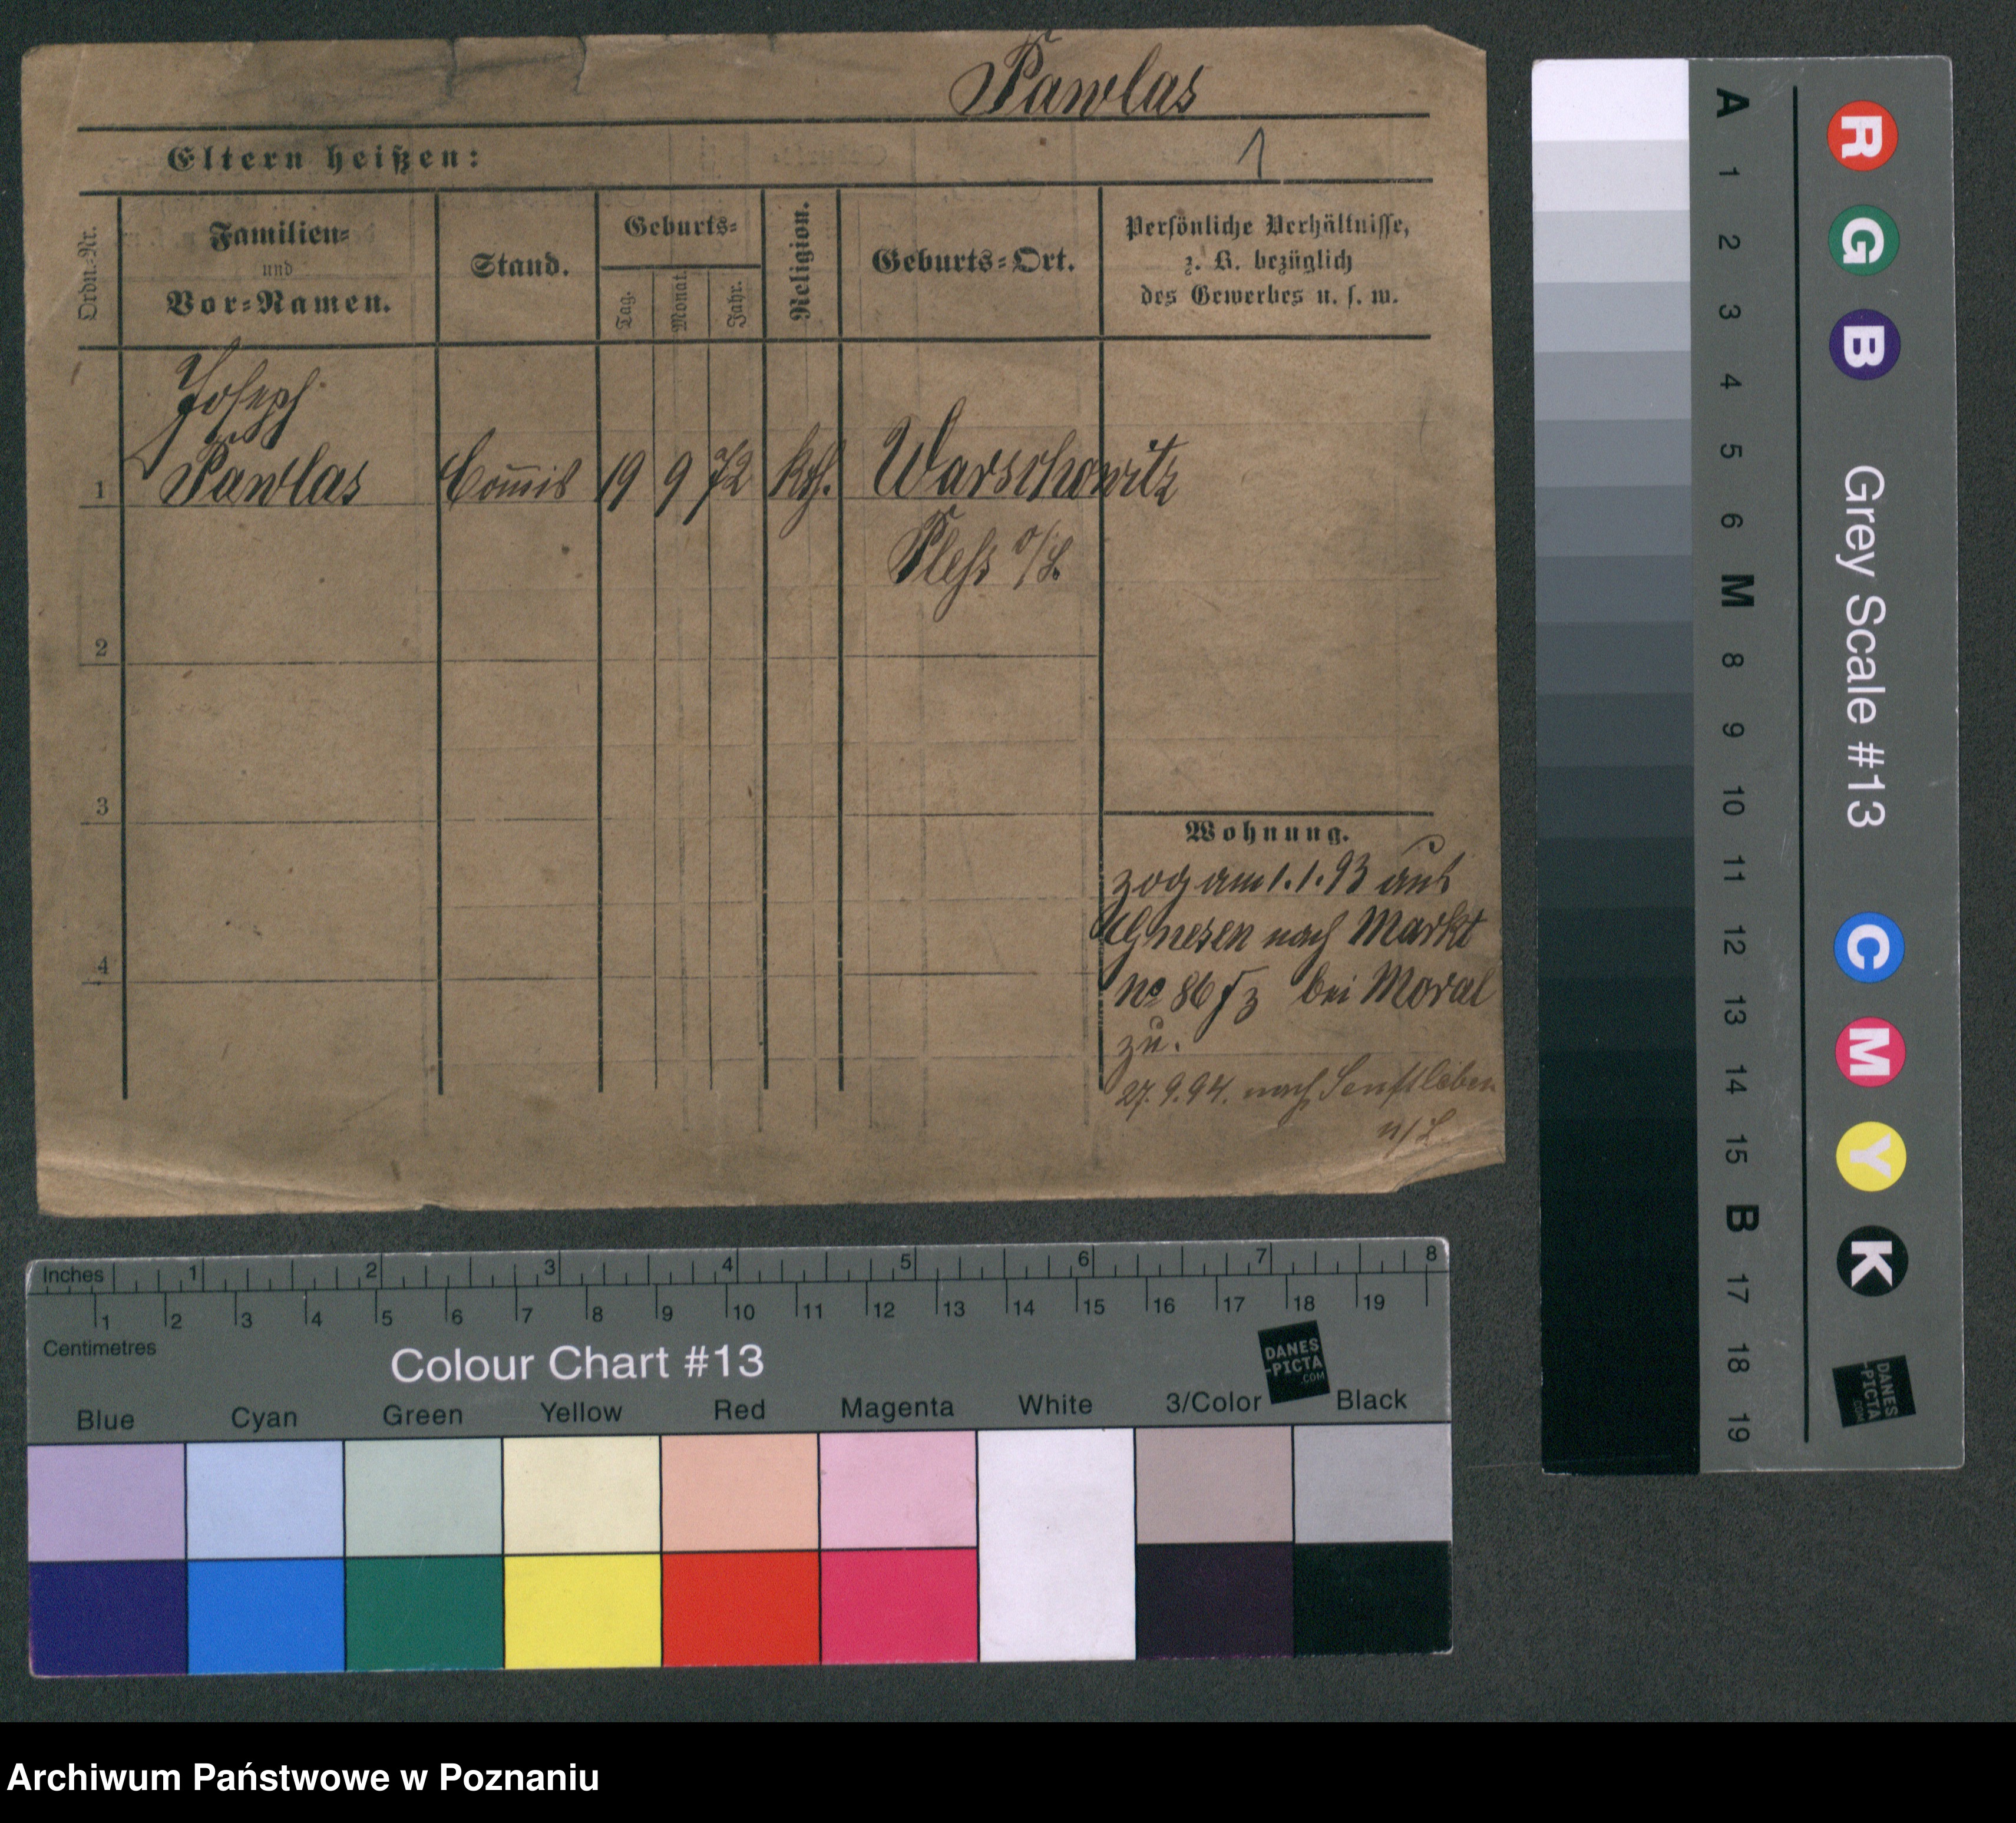 Pawlas
Eltern heißen:
1
Ordn.-Nr.
Familien-
und
Vor-Namen.
Stand.
Geburts-
Tag.
Monat.
Jahr.
Religion.
Geburts-Ort.
Persönliche Verhältnisse,
z. B. bezüglich
des Gewerbes u. s. w.
Joseph
1 Pawlas Com̄is 19 9 72 kth. Warschowitz
Pless O/S.
2
3
4
Wohnung.
zog am 1.1.93 aus
Gnesen nach Markt
No 86 bei Moral
zu.
27.9.94. nach Senftleben
n/L
Inches 1 2 3 4 5 6 7 8
1 2 3 4 5 6 7 8 9 10 11 12 13 14 15 16 17 18 19
Centimetres
Colour Chart #13
DANES
-PICTA
.COM
Blue Cyan Green Yellow Red Magenta White 3/Color Black
R G B
Grey Scale #13
C M Y K
A 1 2 3 4 5 6 M 8 9 10 11 12 13 14 15 B 17 18 19
DANES
-PICTA
.COM
Archiwum Państwowe w Poznaniu